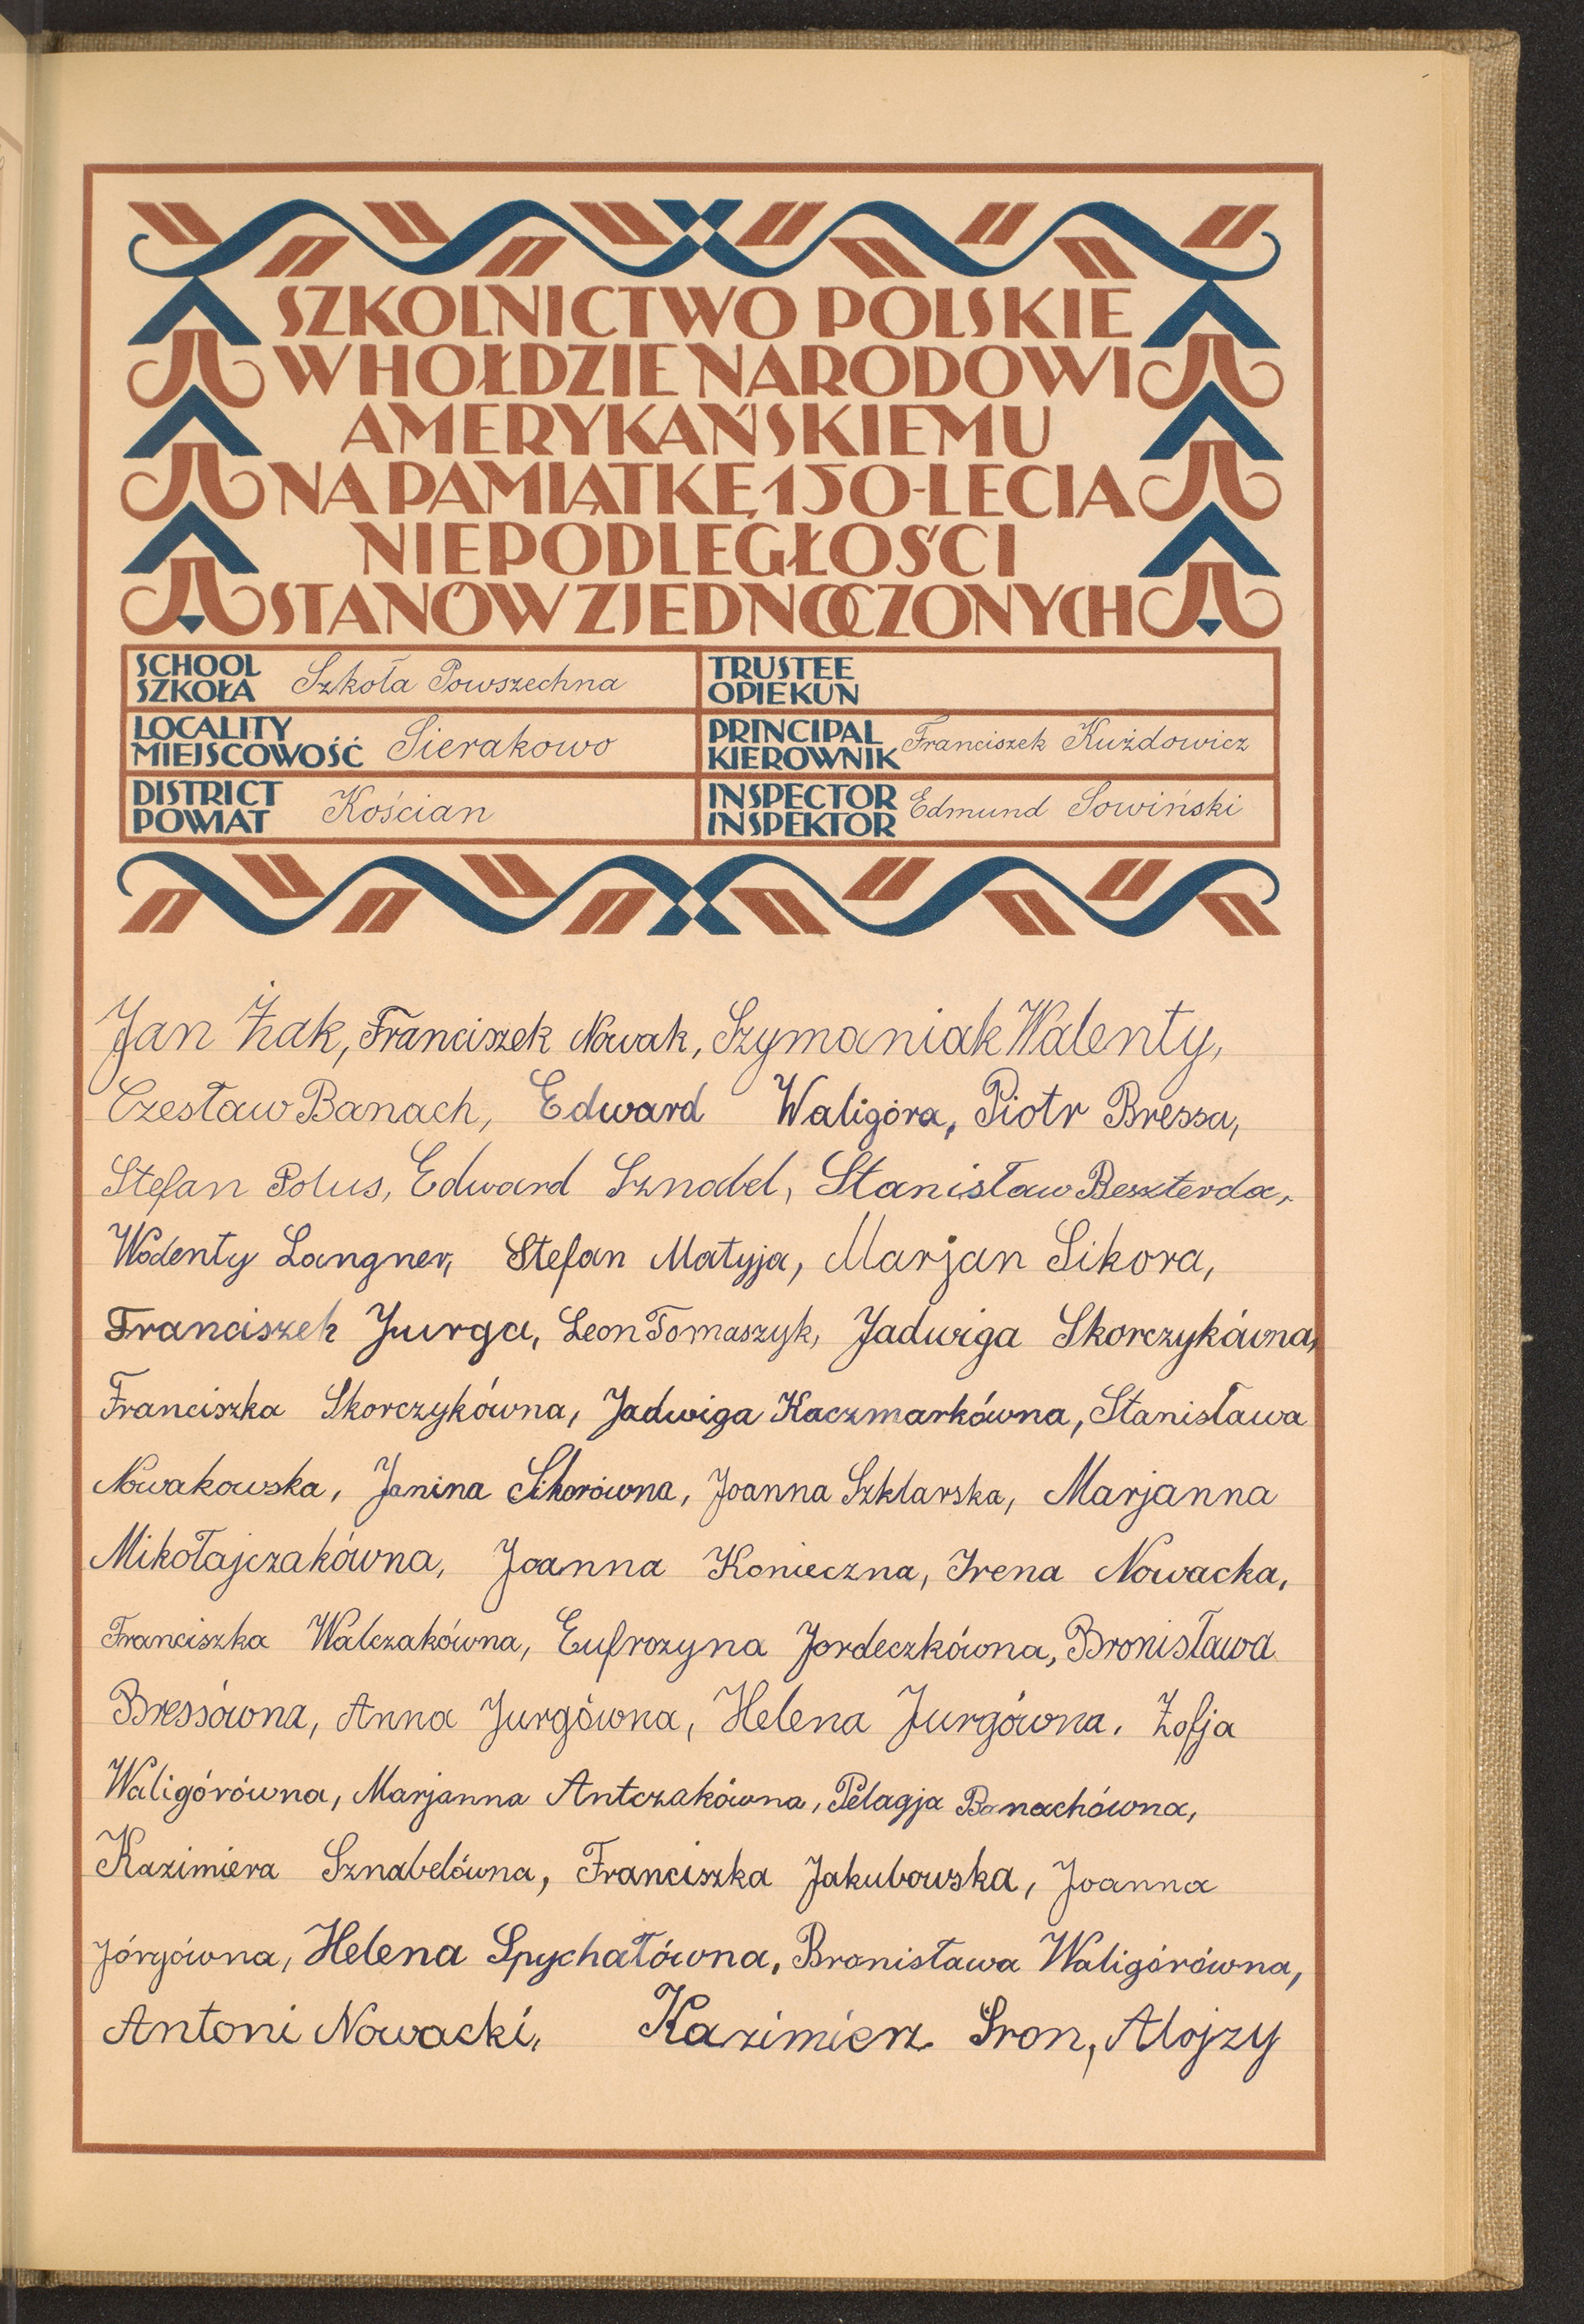 SZKOLNICTWO POLSKIE
W HOŁDZIE NARODOWI
AMERYKAŃSKIEMU
NA PAMIĄTKĘ 150-LECIA
NIEPODLEGŁOŚCI
STANÓW ZJEDNOCZONYCH
SCHOOL
SZKOŁA Szkoła Powszechna
TRUSTEE
OPIEKUN
LOCALITY
MIEJSCOWOŚĆ Sierakowo
PRINCIPAL
KIEROWNIK Franciszek Kużdowicz
DISTRICT
POWIAT Kościan
INSPECTOR
INSPEKTOR Edmund Sowiński
Jan Żak, Franciszek Nowak, Szymaniak Walenty,
Czesław Banach, Edward Waligóra, Piotr Bressa,
Stefan Polus, Edward Sznabel, Stanisław Beszterda,
Walenty Langner, Stefan Matyja, Marjan Sikora,
Franciszek Jurga, Leon Tomaszyk, Jadwiga Skorczykówna,
Franciszka Skorczykówna, Jadwiga Kaczmarkówna, Stanisława
Nowakowska, Janina Sikorówna, Joanna Szklarska, Marjanna
Mikołajczakówna, Joanna Konieczna, Irena Nowacka,
Franciszka Walczakówna, Eufrozyna Jordeczkówna, Bronisława
Bressówna, Anna Jurgówna, Helena Jurgówna, Zofja
Waligórówna, Marjanna Antczakówna, Pelagja Banachówna,
Kazimiera Sznabelówna, Franciszka Jakubowska, Joanna
Jórgówna, Helena Spychałówna, Bronisława Waligórówna,
Antoni Nowacki, Kazimierz Sron, Alojzy